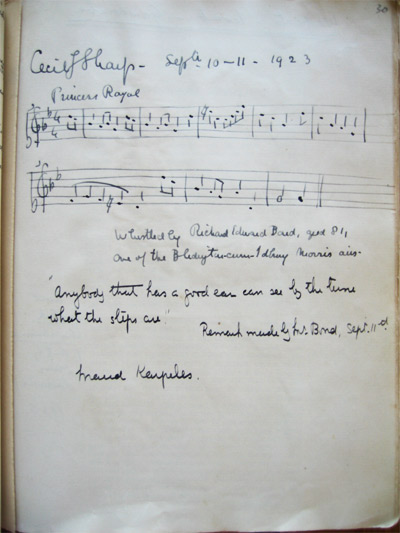 30
Cecil J Sharp - Sept. 10-11-1923
Princess Royal
Whistled by Richard Edward Bond, aged 81,
one of the Bledington-cum-Idbury Morris airs.
"Anybody that has a good ear can see by the tune
what the steps are"
Remark made by Mr. Bond, Sept. 11
Maud Karpeles.